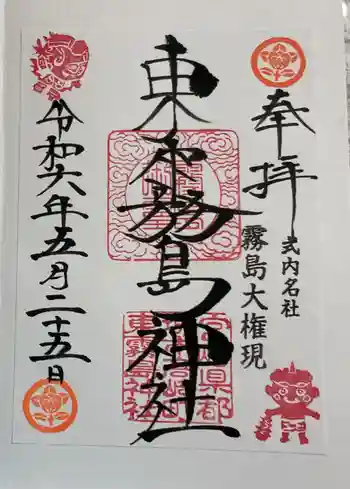 奉拝
式内名社
霧島大権現
東霧島神社
令和六年五月二十五日
東霧島神社